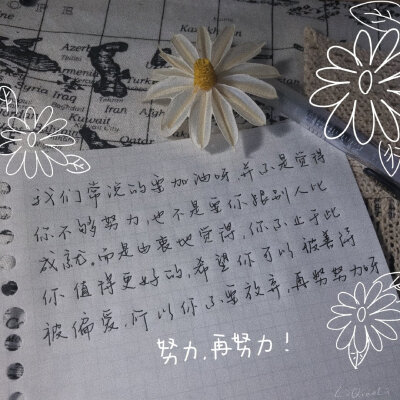 Azerb
Tbilisi
Azerbai
Armenia
Syria Iraq
Baghdad
Tehran
Iran
Kuwait
Kuwait City
Qatar
我们常说的要加油呀,并不是觉得
你不够努力,也不是要你跟别人比
成就,而是由衷地觉得,你不止于此
你值得更好的,希望你可以被善待
被偏爱,所以你不要放弃,再努努力呀
努力,再努力!